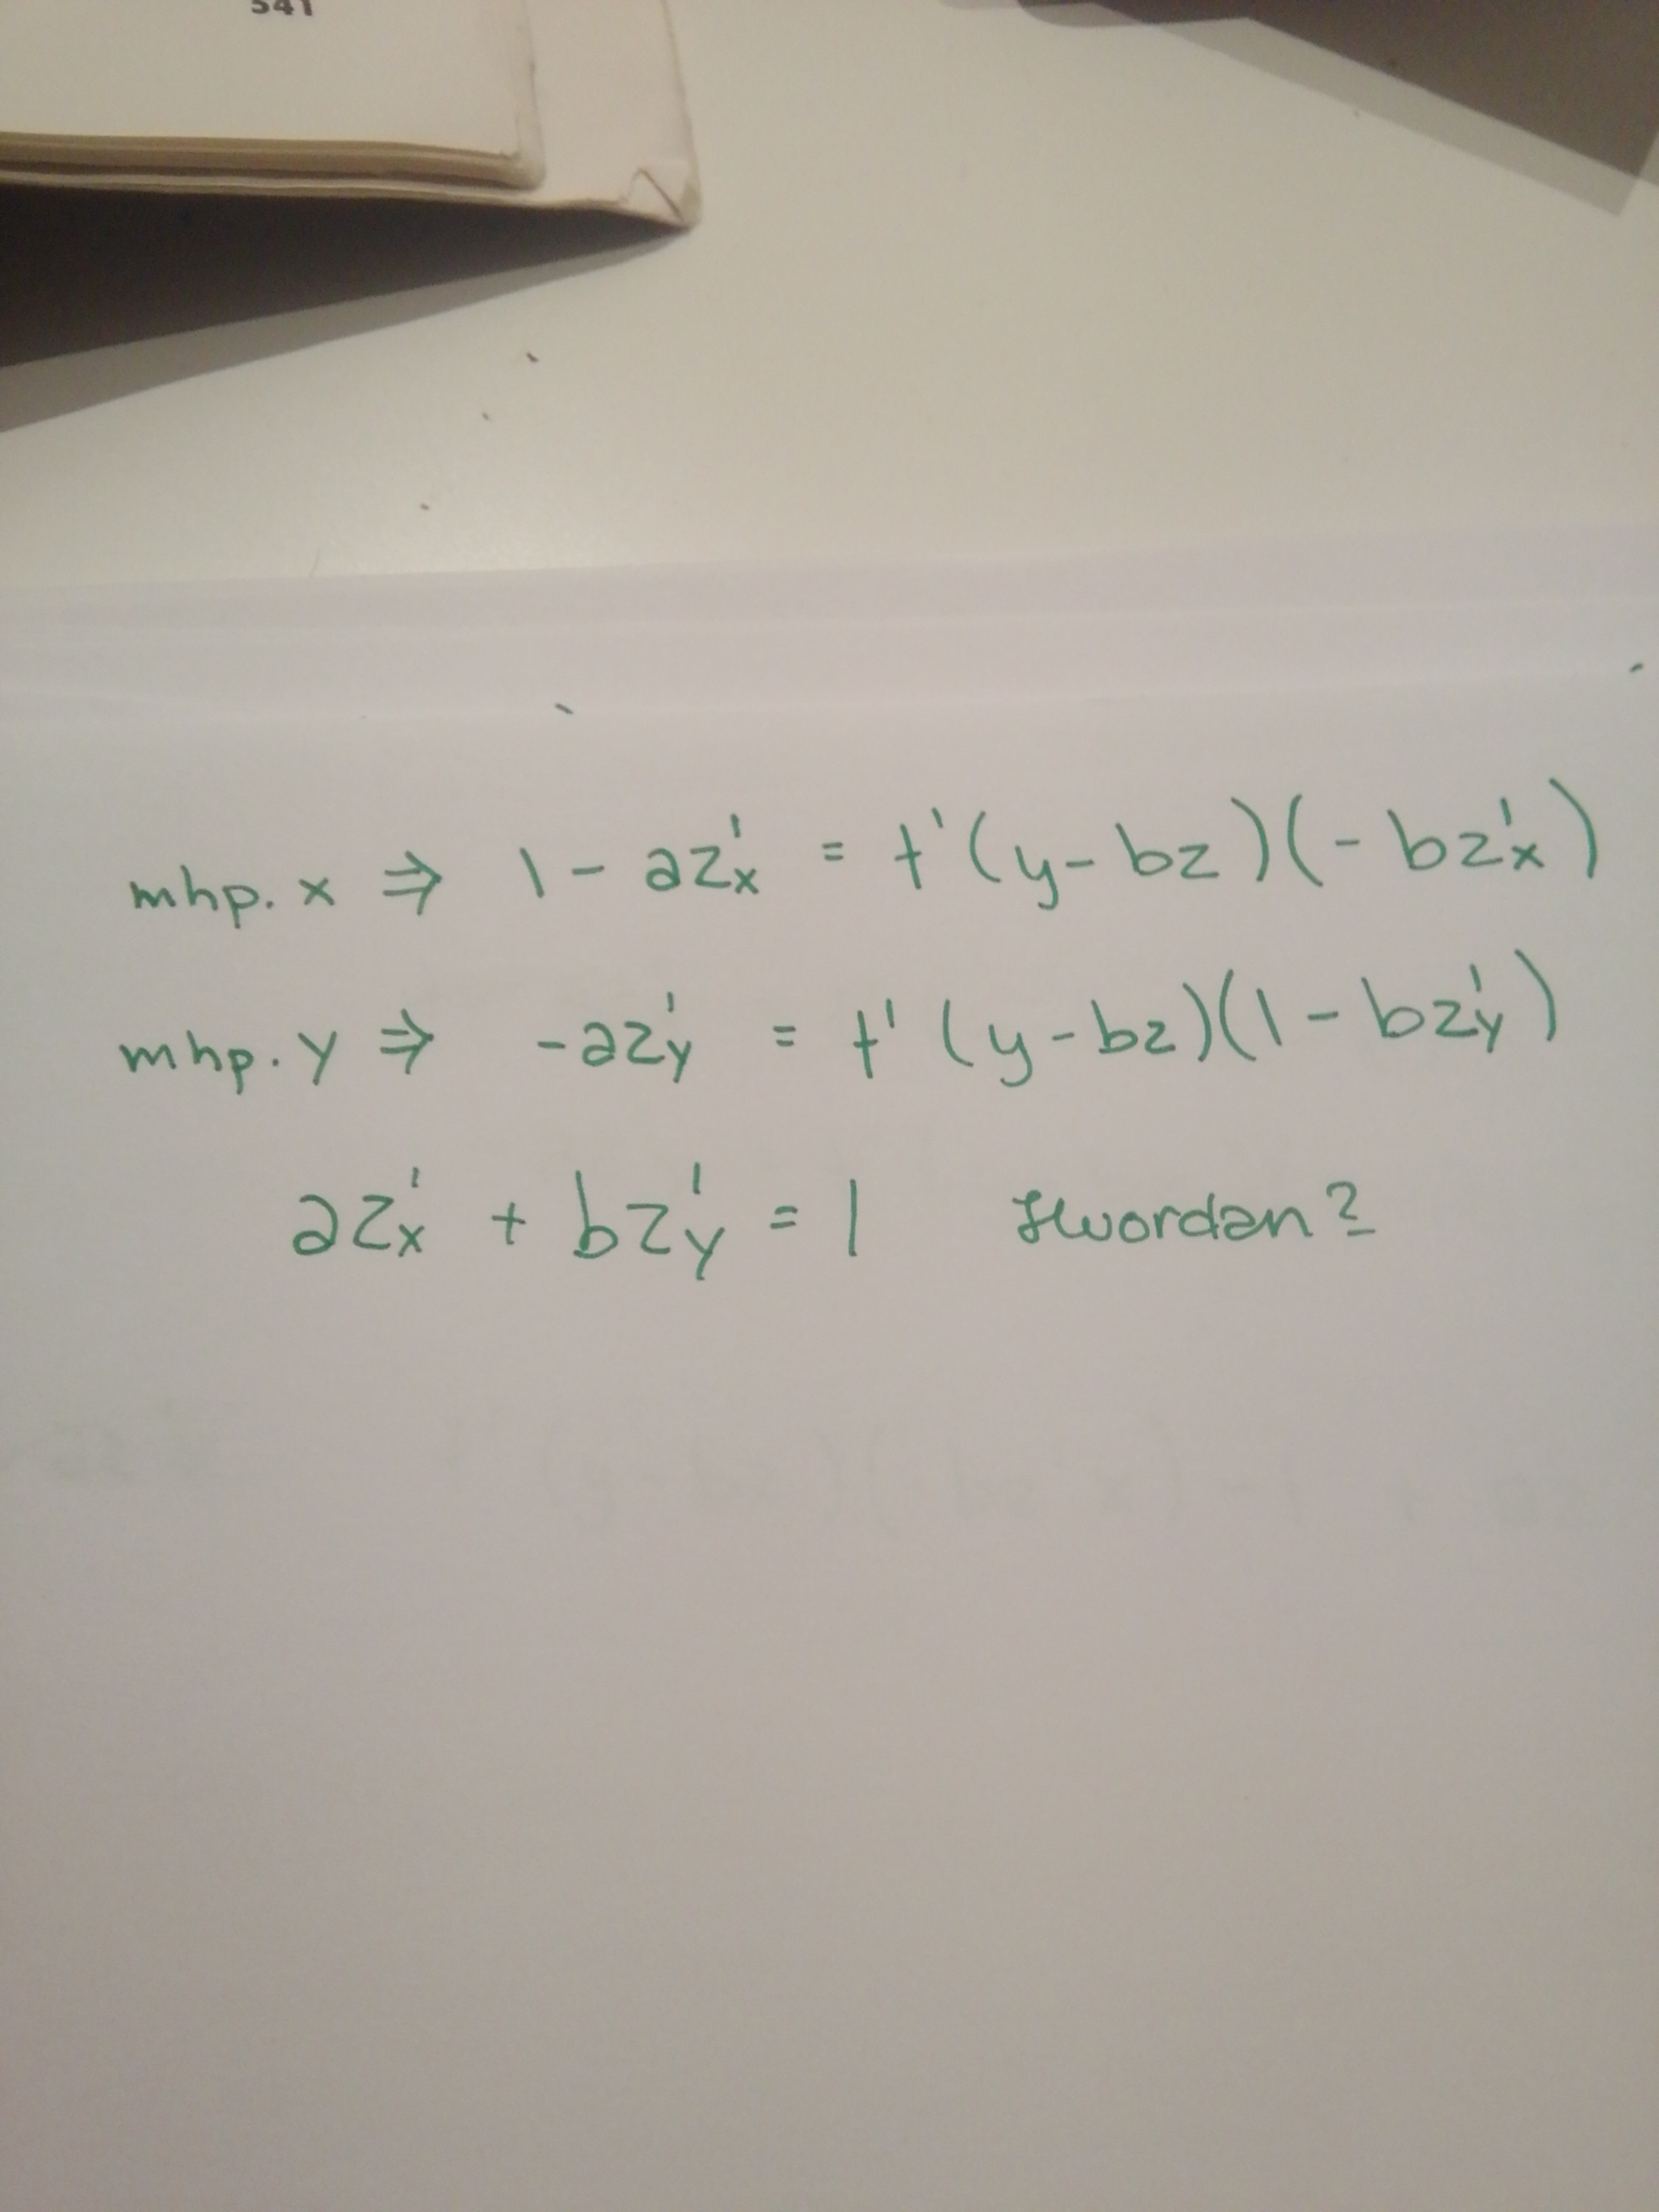 541
mhp. x ⇒ 1 - az'x = f'(y-bz)(-bz'x)
mhp. y ⇒ -az'y = f'(y-bz)(1-bz'y)
az'x + bz'y = 1 Hvordan?